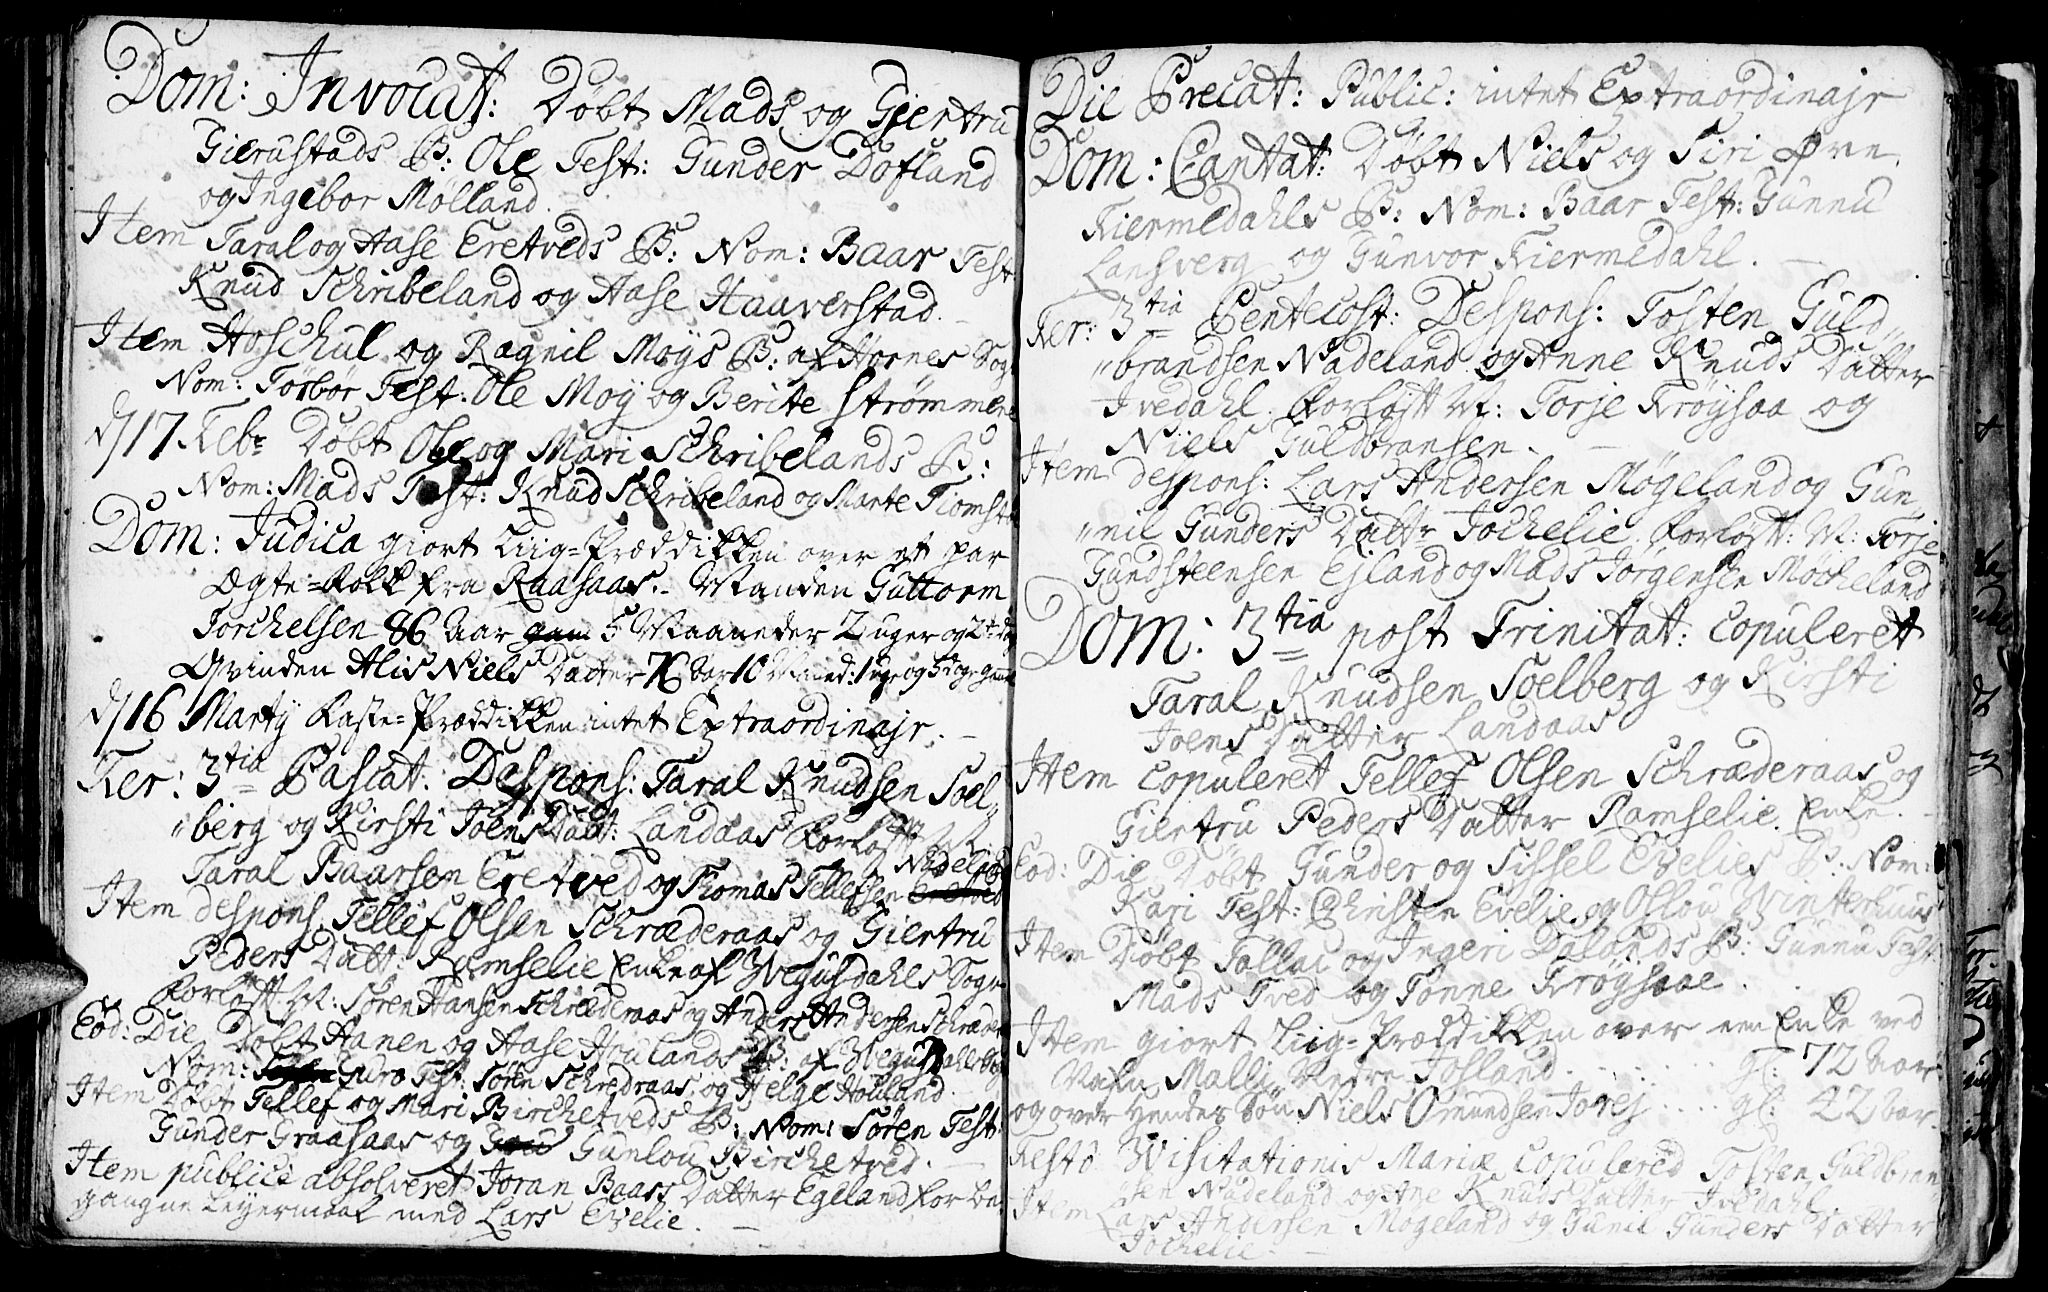 Dom: Invocat: Døbt Mads og Giertru
Gierustads B: Ole Test: Gunder Dofland
og Ingebor Mølland.
Item Taral og Aase Eretveds B: Nom: Baar Test
Knud Schribeland og Aase Haaverstad.
Item Hoschul og Ragnil Moys B: af Hornes Sogn
Nom: Torbør Test: Ole Moy og Berite Strømmene
d/17 Feb: Døbt Ole og Mari Schribelands B:
Nom: Mads Test: Knud Schribeland og Marte
Dom: Judica giort Liig=Præddikken over et par
Ægte=Folk fra Raasaas. Manden Guttorm
Torchelsen 86 Aar 5 Maaneder 2 uger og 2
Qvinden Alis Niels Datter 76 Aar 10 Maaned: 1 uge og 5 dage
d/16 Marty Faste=Præddikken intet Extraordinajr.
Fer: 3tia Pascat: Despons: Taral Knudsen Soel„
„berg og Kirsti Joens Datt: Landaas Forløft M:
Nidelied
Taral Baarsen Eretved og Thomas Tellefsen
Item despons: Tellef Olsen Schræderaas og Giertru
Peders Datt: Ramselie Enke af Wegusdahls Sogn
Forløft M: Søren Hansen Schræderaas og Anders Andersen Schræderaas
Eod: Die Døbt Aanen og Aase Houlands B: af Wegusdahls Sogn
Nom: Guro Test: Søren Schredraas og Helge Houland.
Item Døbt Tellef og Mari Birchetveds B: Nom: Søren Test:
Gunder Graasaas og Gunlou Birchetved.
Item publicè absolveret Joran Baars Datter Egeland for be„
gangne Leyermaal med Lars Evelie.
Die Precat: Public: intet Extraordinajr
Dom: Cantat: Døbt Niels og Siri Øvre
Kiermedahls B: Nom: Baar Test: Gunnu
Lansverg og Gunvor Kiermedahl.
Fer: 3tia Pentecost: Despons: Tosten Guld„
„brandsen Nadeland og Anne Knuds Datter
Ivedahl. Forløft M: Torje Frøysaa og
Niels Guldbransen.
Item despons: Lars Andersen Møgeland og Gun„
„nil Gunders Datt: Jochelie. Forløft: M: Torje
Gundsteensen Ejland og Mads Jørgensen Møcheland
Dom: 3tia post Trinitat: Copuleret
Taral Knudsen Soelberg og Kirsti
Joens Datter Landaas
Item Copuleret Tellef Olsen Schræderaas og
Giertru Peders Datter Ramselie. Enke.
Eod: Die Døbt Gunder og Sissel Evelies B: Nom:
Kari Test: Christen Evelie og Oslou Winterhuus
Item Døbt Tallac og Ingeri Dalands B: Gunnu Test:
Mads Tved og Tonne Frøysaae.
Item giort Liig=Præddikken over een Enke ved
Nafn Malli Nedre Josland ...... gl: 72 Aar
og over hendes Søn Niels Omundsen ..... gl: 42 Aar.
Festo Wisitationis Mariæ Copulered Tosten Guldbran„
„sen Nadeland og Ane Knuds Datter Ivedahl
Item Lars Andersen Møgeland og Gunil Gunders Datter
Jochelie.